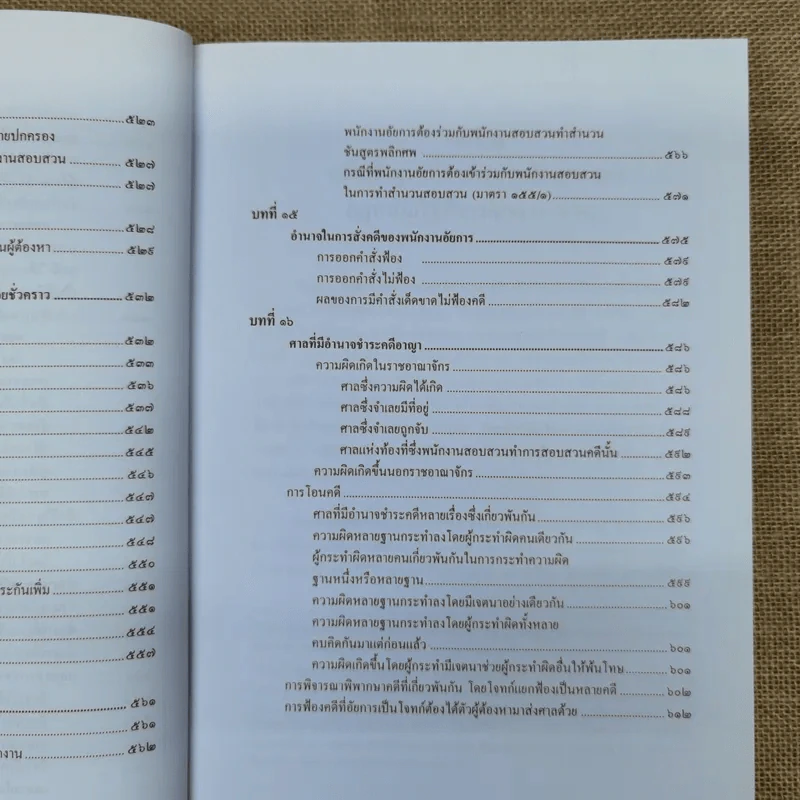 ........๕๒๓
ายปกครอง
งานสอบสวน ........๕๒๗
........๕๒๗
........๕๒๘
นผู้ต้องหา ........๕๒๙
ยชั่วคราว ........๕๓๒
........๕๓๒
........๕๓๓
........๕๓๖
........๕๓๗
........๕๔๒
........๕๔๕
........๕๔๖
........๕๔๗
........๕๔๗
........๕๔๘
........๕๕๐
ระกันเพิ่ม ........๕๕๑
........๕๕๑
........๕๕๔
........๕๕๗
........๕๖๑
........๕๖๑
ทงาน ........๕๖๒
พนักงานอัยการต้องร่วมกับพนักงานสอบสวนทำสำนวน
ชันสูตรพลิกศพ ........๕๖๖
กรณีที่พนักงานอัยการต้องเข้าร่วมกับพนักงานสอบสวน
ในการทำสำนวนสอบสวน (มาตรา ๑๕๕/๑) ........๕๗๑
บทที่ ๑๕
อำนาจในการสั่งคดีของพนักงานอัยการ ........๕๗๕
การออกคำสั่งฟ้อง ........๕๗๙
การออกคำสั่งไม่ฟ้อง ........๕๗๙
ผลของการมีคำสั่งเด็ดขาดไม่ฟ้องคดี ........๕๘๒
บทที่ ๑๖
ศาลที่มีอำนาจชำระคดีอาญา ........๕๘๖
ความผิดเกิดในราชอาณาจักร ........๕๘๖
ศาลซึ่งความผิดได้เกิด ........๕๘๖
ศาลซึ่งจำเลยมีที่อยู่ ........๕๘๘
ศาลซึ่งจำเลยถูกจับ ........๕๘๙
ศาลแห่งท้องที่ซึ่งพนักงานสอบสวนทำการสอบสวนคดีนั้น ........๕๙๒
ความผิดเกิดขึ้นนอกราชอาณาจักร ........๕๙๓
การโอนคดี ........๕๙๔
ศาลที่มีอำนาจชำระคดีหลายเรื่องซึ่งเกี่ยวพันกัน ........๕๙๖
ความผิดหลายฐานกระทำลงโดยผู้กระทำผิดคนเดียวกัน ........๕๙๖
ผู้กระทำผิดหลายคนเกี่ยวพันกันในการกระทำความผิด
ฐานหนึ่งหรือหลายฐาน ........๕๙๙
ความผิดหลายฐานกระทำลงโดยมีเจตนาอย่างเดียวกัน ........๖๐๑
ความผิดหลายฐานกระทำลงโดยผู้กระทำผิดทั้งหลาย
คบคิดกันมาแต่ก่อนแล้ว ........๖๐๑
ความผิดเกิดขึ้นโดยผู้กระทำมีเจตนาช่วยผู้กระทำผิดอื่นให้พ้นโทษ ........๖๐๑
การพิจารณาพิพากษาคดีที่เกี่ยวพันกัน โดยโจทก์แยกฟ้องเป็นหลายคดี ........๖๐๒
การฟ้องคดีที่อัยการเป็นโจทก์ต้องได้ตัวผู้ต้องหามาส่งศาลด้วย ........๖๑๒